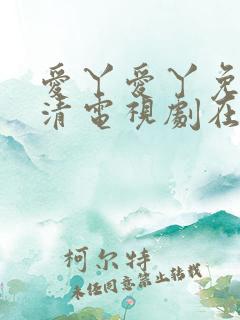 愛丫愛丫免
清電視劇在
柯尔特
未经同意禁止转载